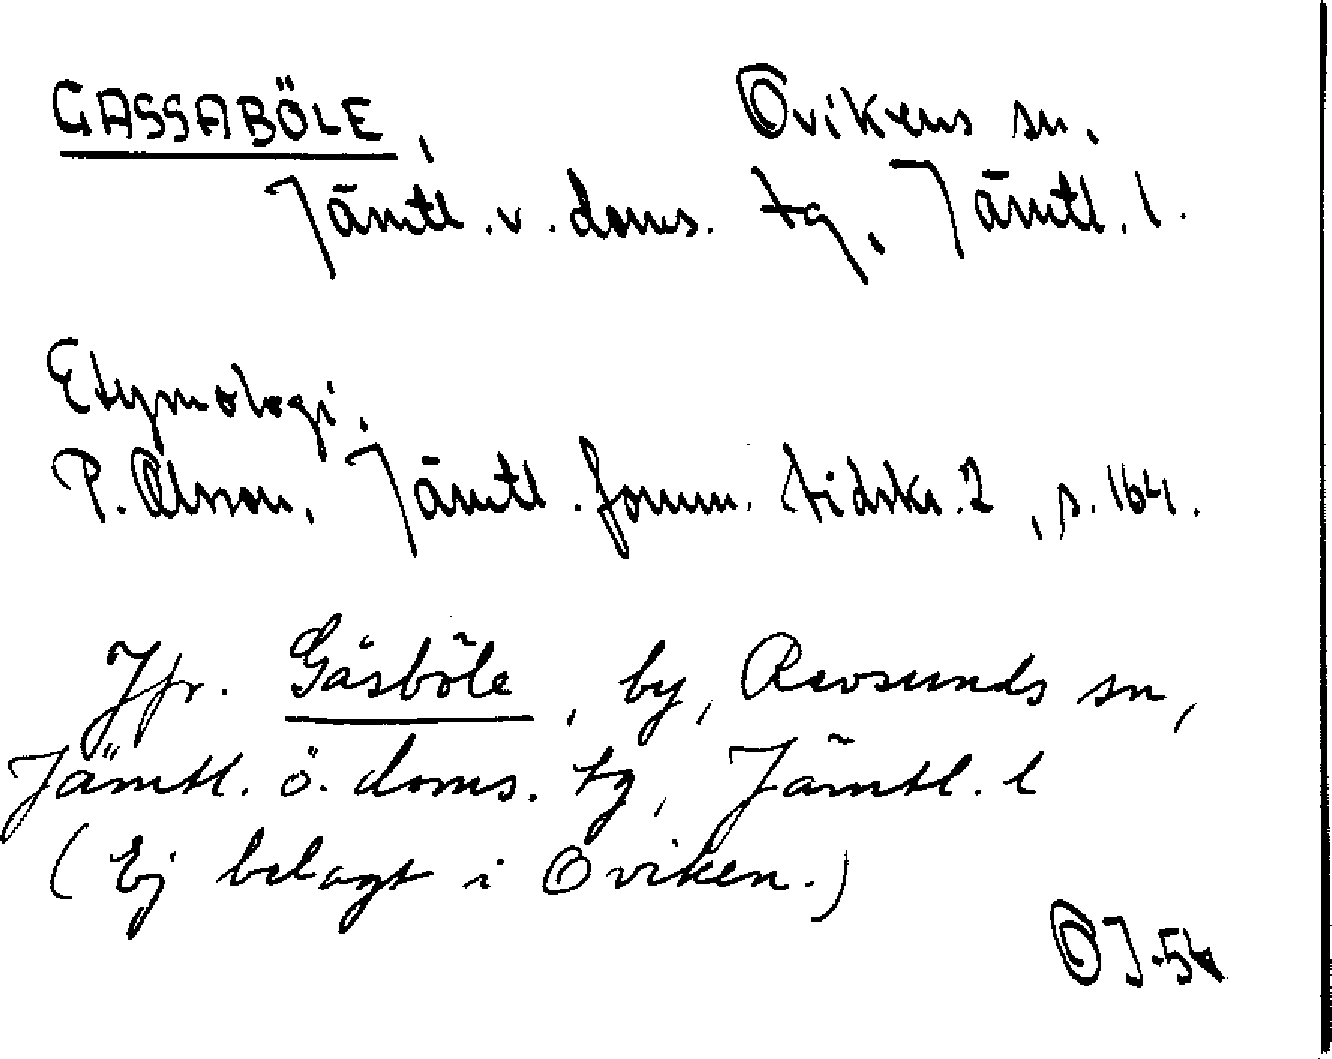 GASSABÖLE, Ovikens sn.
Jämtl. v. doms. tg, Jämtl. l.
Etymologi.
P. Olsson, Jämtl. fornm. tidskr. 2, s. 164.
Jfr. Gåsböle, by, Revsunds sn,
Jämtl. ö. doms. tg, Jämtl. l
(Ej belagt i Oviken.)
OJ-54